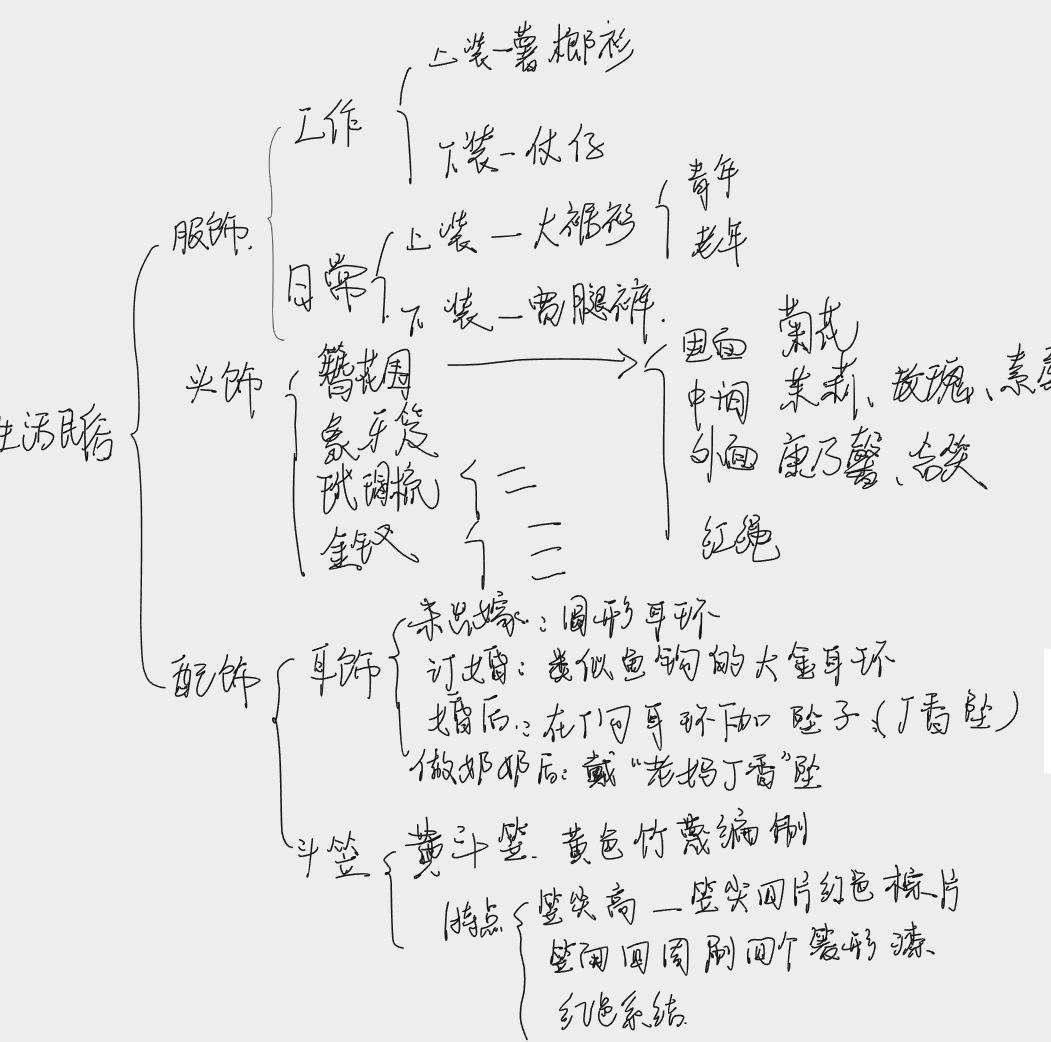 上装—薯榔衫
工作
下装—仗仔
青年
服饰.
上装—大裾衫
老年
日常
下装—宽腿裤.
头饰
簪花围
里面 菊花
中间 茉莉、玫瑰、素
生活民俗
象牙筷
外面 康乃馨、含笑
玳瑁梳 二
金钗 一
三
红绳
未出嫁:圆形耳环
配饰
耳饰
订婚:类似鱼钩的大金耳环
婚后:在订婚耳环下加坠子(丁香坠)
做奶奶后:戴“老妈丁香”坠
斗笠
黄斗笠.黄色竹篾编制
特点
笠尖高—笠尖四片红色棕片
笠面四周刷四个菱形漆
红色系结